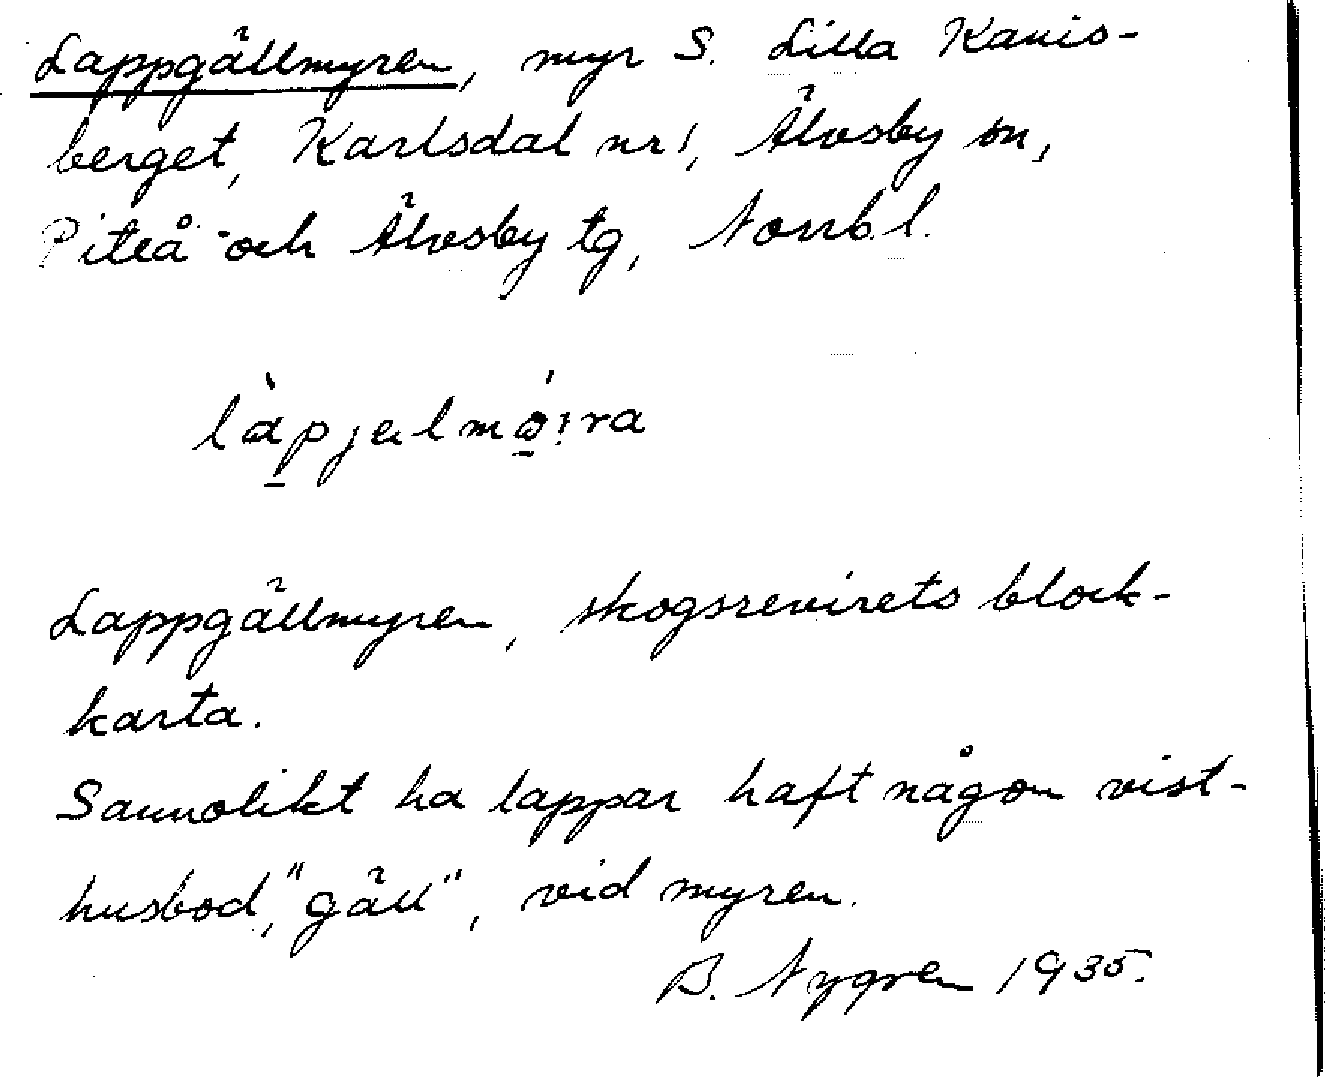 Lappgällmyren, myr S. Lilla Kanis-
berget, Karlsdal nr 1, Älvsby sn,
Piteå och Älvsby tg, Norrb. l.
làpjælmǿ:ra
Lappgällmyren, skogsrevirets block-
karta.
Sannolikt ha lappar haft någon vist-
husbod, "gäll", vid myren.
B. Nygren 1935.